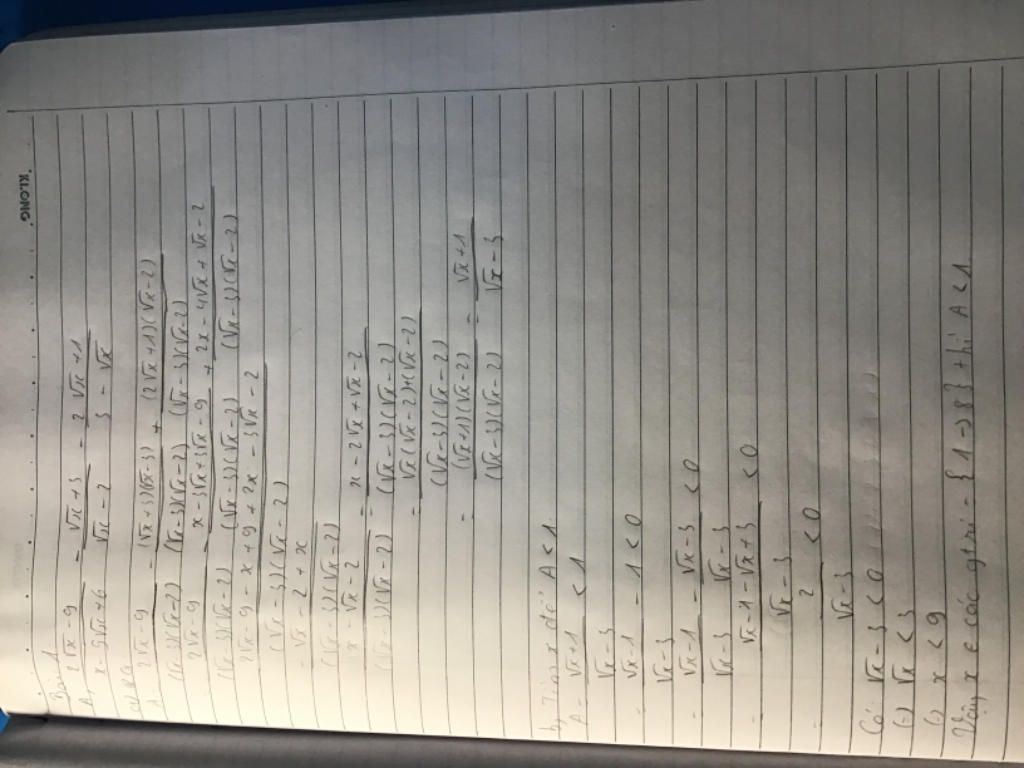 KLONG
Bài 1
A = 2√x - 9 / x - 5√x + 6 - √x + 3 / √x - 2 - 2√x + 1 / 3 - √x
A = 2√x - 9 / (√x - 3)(√x - 2) - (√x + 3)(√x - 3) / (√x - 3)(√x - 2) + (2√x + 1)(√x - 2) / (√x - 3)(√x - 2)
2√x - 9 / (√x - 3)(√x - 2) - x - 3√x + 3√x - 9 / (√x - 3)(√x - 2) + 2x - 4√x + √x - 2 / (√x - 3)(√x - 2)
2√x - 9 - x + 9 + 2x - 3√x - 2 / (√x - 3)(√x - 2)
- √x - 2 + x / (√x - 3)(√x - 2)
x - √x - 2 / (√x - 3)(√x - 2) = x - 2√x + √x - 2 / (√x - 3)(√x - 2)
= √x(√x - 2) + (√x - 2) / (√x - 3)(√x - 2)
= (√x + 1)(√x - 2) / (√x - 3)(√x - 2) = √x + 1 / √x - 3
b, Tìm x để A < 1.
A = √x + 1 / √x - 3 < 1
= √x - 1 / √x - 3 - 1 < 0
= √x - 1 / √x - 3 - √x - 3 / √x - 3 < 0
= √x - 1 - √x + 3 / √x - 3 < 0
= 2 / √x - 3 < 0
Có: √x - 3 < 0
(=) √x < 3
(=) x < 9
Vậy x e các giá trị = {1 -> 8} thì A < 1